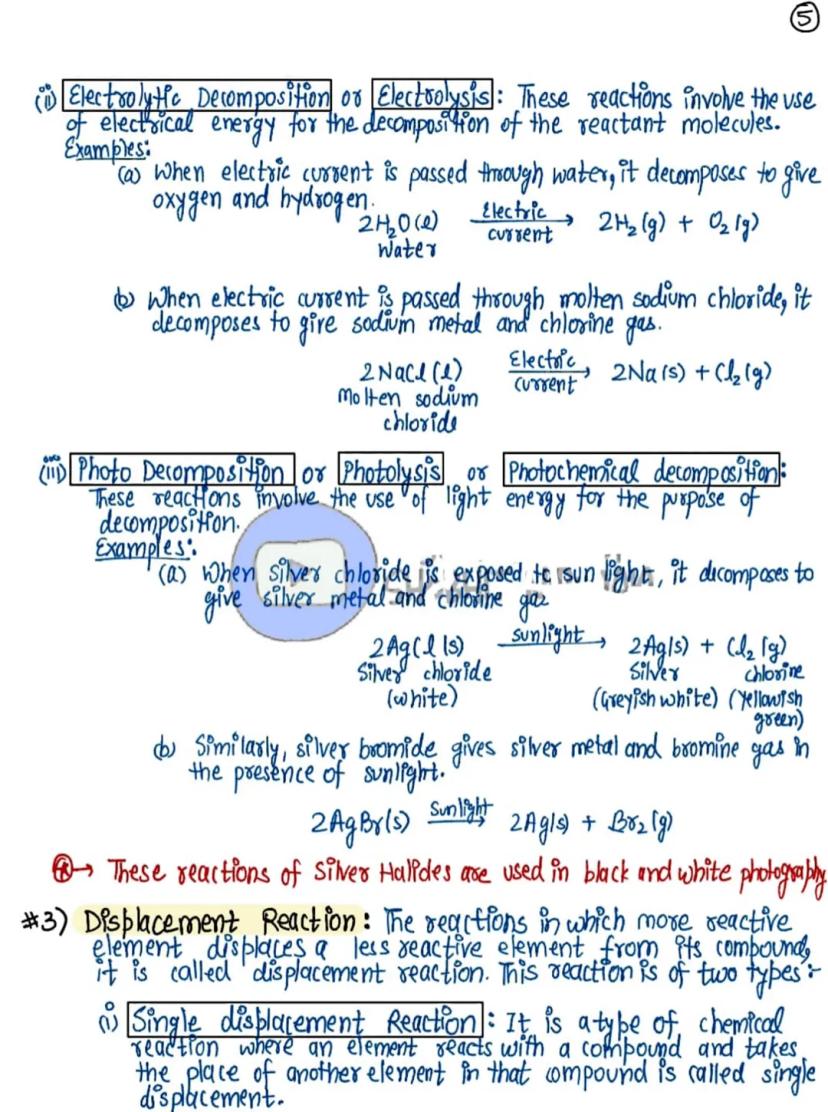 5
(ii) Electrolytic Decomposition or Electrolysis: These reactions involve the use
of electrical energy for the decomposition of the reactant molecules.
Examples:
(a) When electric current is passed through water, it decomposes to give
oxygen and hydrogen.
2H₂O(l) Electric current → 2H₂(g) + O₂(g)
Water
(b) When electric current is passed through molten sodium chloride, it
decomposes to give sodium metal and chlorine gas.
2NaCl(l) Electric current → 2Na(s) + Cl₂(g)
Molten sodium
chloride
(iii) Photo Decomposition or Photolysis or Photochemical decomposition:
These reactions involve the use of light energy for the purpose of
decomposition.
Examples:
(a) When silver chloride is exposed to sun light, it dicomposes to
give silver metal and chlorine gas
2AgCl(s) sunlight → 2Ag(s) + Cl₂(g)
Silver chloride Silver chlorine
(white) (Greyish white) (Yellowish
green)
(b) Similarly, silver bromide gives silver metal and bromine gas in
the presence of sunlight.
2AgBr(s) Sunlight → 2Ag(s) + Br₂(g)
⊛→ These reactions of Silver Halides are used in black and white photography
#3) Displacement Reaction: The reactions in which more reactive
element displaces a less reactive element from its compound,
it is called displacement reaction. This reaction is of two types:-
(i) Single displacement Reaction: It is a type of chemical
reaction where an element reacts with a compound and takes
the place of another element in that compound is called single
displacement.